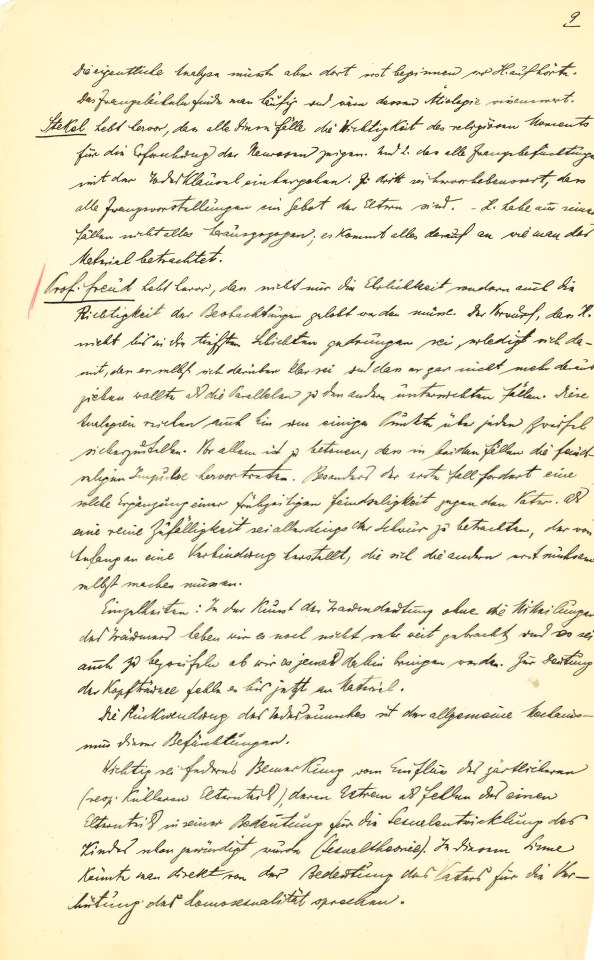 9
Die eigentliche Analyse müsste aber dort erst beginnen wo H. aufhörte.
Das Zwangslächeln finde man häufig und wäre dessen Ätiologie wissenswert.
Stekel hebt hervor, dass alle diese Fälle die Wichtigkeit des religiösen Moments
für die Erforschung der Neurosen zeigen. Und 2. dass alle Zwangsbefürchtungen
mit der Todesklausel einhergehen. Zu dritt sei hervorhebenswert, dass
alle Zwangsvorstellungen ein Gebot der Eltern sind. – H. habe aus seinen
Fällen nicht alles herausgezogen; es kommt alles darauf an wie man das
Material betrachtet.
Prof. Freud hebt hervor, dass nicht nur die Ehrlichkeit sondern auch die
Richtigkeit der Beobachtungen gelobt werden müsse. Der Vorwurf, dass H.
nicht bis in die tiefsten Schichten gedrungen sei, erledigt sich da-
mit, dass er selbst sich darüber klar sei und dass er gar nicht mehr daraus
ziehen wollte als die Parallelen zu den andern untersuchten Fällen. Diese
Analysen reichen auch hin um einige Punkte über jeden Zweifel
sicherzustellen. Vor allem ist zu betonen, dass in beiden Fällen die feind-
seligen Impulse hervortreten. Besonders der erste Fall fordert eine
solche Ergänzung einer frühzeitigen Feindseligkeit gegen den Vater. Als
eine reine Zufälligkeit sei allerdings der Schwur zu betrachten, der von
Anfang an eine Verbindung herstellt, die sich die andern erst mühsam
selbst machen müssen.
Einzelheiten: In der Kunst der Traumdeutung ohne die Mitteilungen
des Träumers haben wir es noch nicht sehr weit gebracht und es sei
auch zu bezweifeln ob wir es jemals dahin bringen werden. Zur Deutung
der Kopfträume fehle es bis jetzt an Material.
Die Rückwendung des Todeswunsches ist der allgemeine Mechanis-
mus dieser Befürchtungen.
Wichtig sei Federns Bemerkung vom Einfluss des zärtlicheren
(resp. kühleren Elternteils) deren Extrem als Fehlen des einen
Elternteils in seiner Bedeutung für die Sexualentwicklung des
Kindes schon gewürdigt wurde (Sexualtheorie). In diesem Sinne
könnte man direkt von der Bedeutung des Vaters für die Ver-
hütung der Homosexualität sprechen.